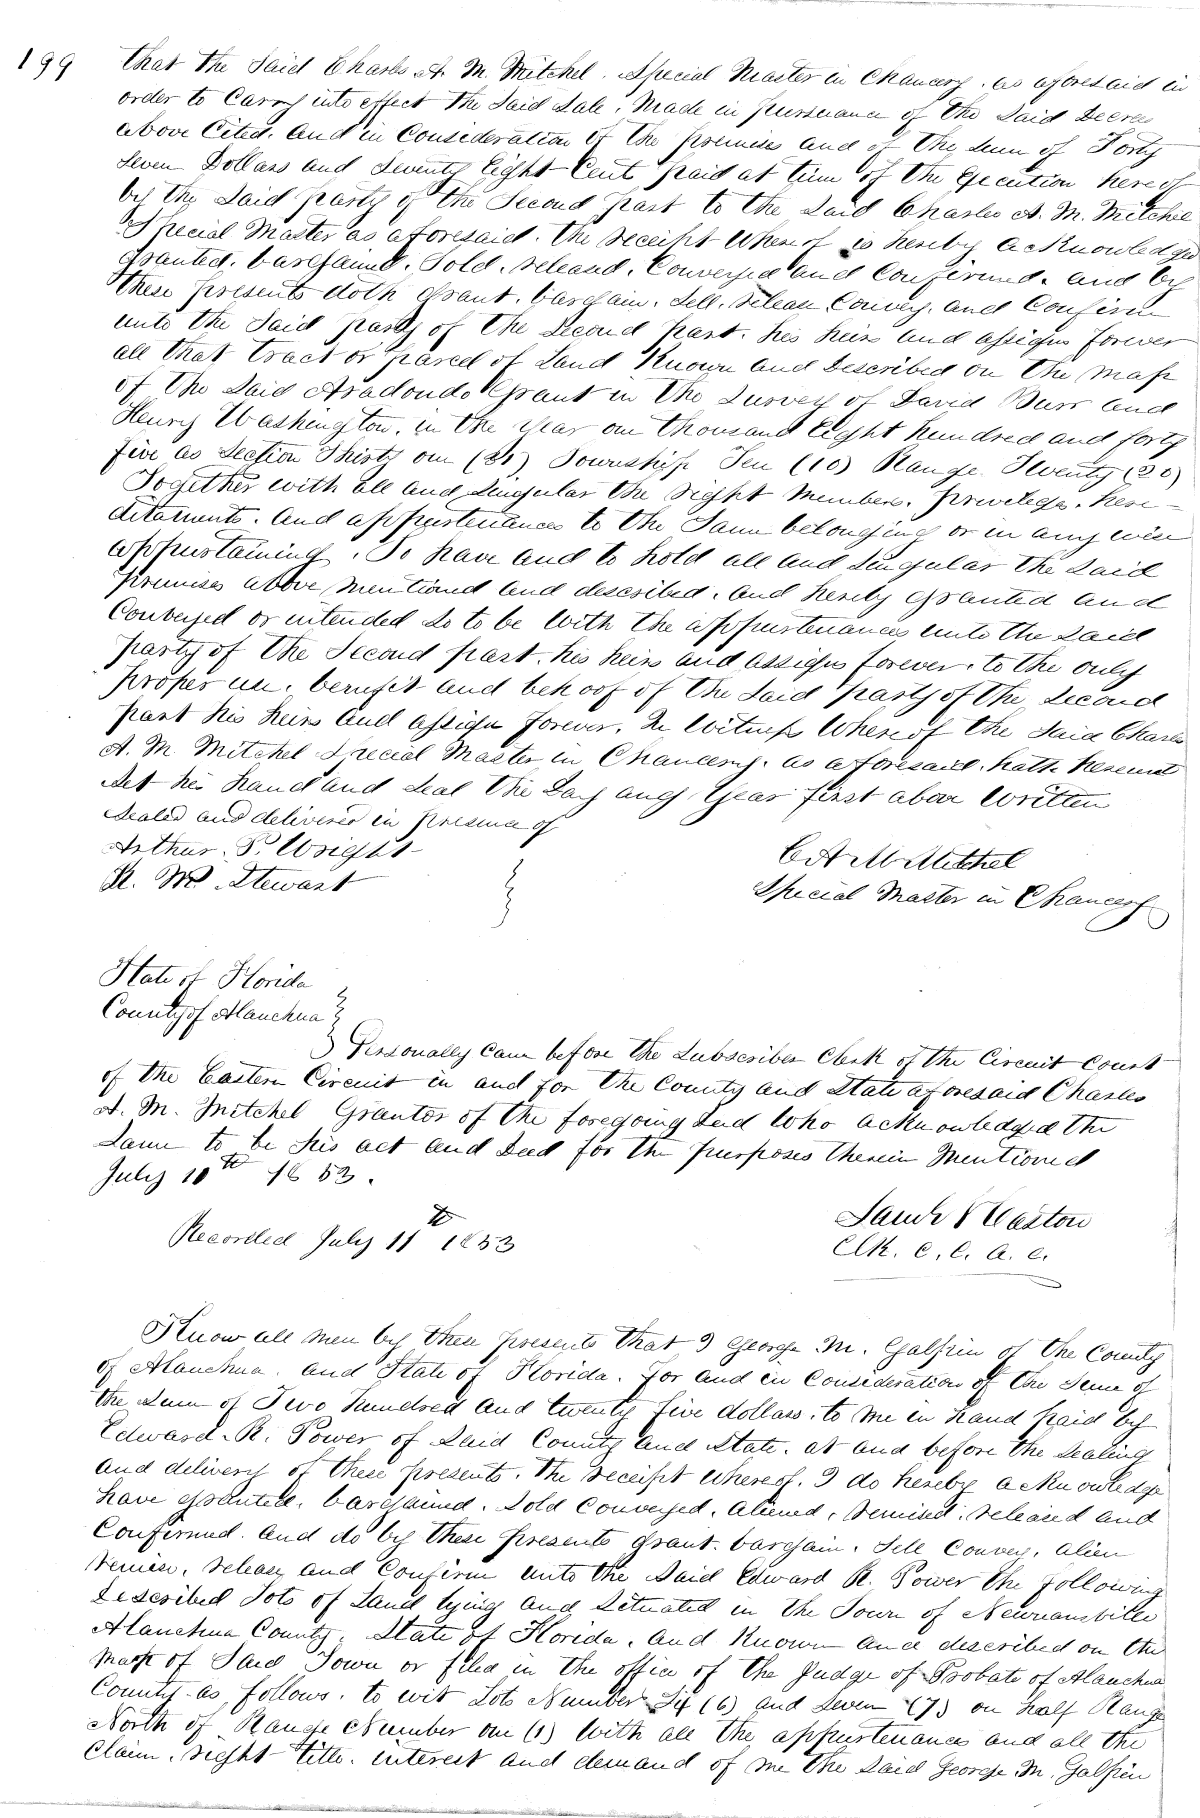 199
that the Said Charles A. M. Mitchel. Special Master in Chancery. as aforesaid in
order to Carry into effect the Said Sale. Made in pursuance of the Said Decree
above Cited. and in Consideration of the premises and of the Sum of Forty
Seven Dollars and Seventy Eight Cent paid at time of the Execution hereof
by the Said party of the Second part to the Said Charles A. M. Mitchel
Special Master as aforesaid. the receipt Whereof is hereby acknowledged
granted. bargained. Sold. released. Conveyed and Confirmed. and by
these presents doth grant. bargain. Sell. release Convey. and Confirm
unto the Said party of the Second part. his heirs and assigns forever
all that tract or parcel of Land Known and Described on the map
of the Said Aradondo Grant in the Survey of David Burr and
Henry Washington. in the Year one thousand Eight hundred and forty
five as Section Thirty one (31) Township Ten (10) Range Twenty (20)
Together with all and Singular the right members. privileges. here-
ditaments. and appurtenances to the Same belonging or in any wise
appurtaining. To have and to hold all and Singular the Said
premises above mentioned and described. and hereby granted and
Conveyed or intended So to be With the appurtenances unto the Said
party of the Second part. his heirs and assigns forever. to the only
proper use. benefit and behoof of the Said party of the Second
part his heirs and assigns forever. In Witness Whereof the Said Charles
A. M. Mitchel Special Master in Chancery. as aforesaid. hath hereunto
Set his hand and Seal the Day and Year first above Written
Sealed and delivered in presence of
Arthur. P. Wright
R. M. Stewart
C A M Mitchel
Special Master in Chancery
State of Florida
County of Alanchua
Personally Came before the Subscriber Clerk of the Circuit Court
of the Eastern Circuit in and for the County and State aforesaid Charles
A. M. Mitchel Grantor of the foregoing Deed Who acknowledged the
Same to be his act and Deed for the purposes therein Mentioned
July 10th 1853.
Recorded July 11th 1853
Clk. C. C. A. C.
Know all men by these presents that I George M. Galpin of the County
of Alanchua. and State of Florida. For and in Consideration of the Sum of
the Sum of Two hundred and twenty five dollars. to me in hand paid by
Edward. R. Power of Said County and State. at and before the Sealing
and delivery of these presents. the receipt Whereof. I do hereby acknowledge
have granted. bargained. Sold Conveyed. aliened. remised. released and
Confirmed. and do by these presents grant. bargain. Sell Convey. alien
remise. release and Confirm unto the Said Edward R. Power the following
Described Lots of Land lying and Situated in the Town of Newnansville
Alanchua County. State of Florida. and Known and described on the
Map of Said Town or filed in the office of the Judge of Probate of Alanchua
County as follows. to wit Lots Number Six (6) and Seven (7) on half Range
North of Range Number one (1) With all the appurtenances and all the
Claim. right title. interest and demand of me the Said George. M. Galpin